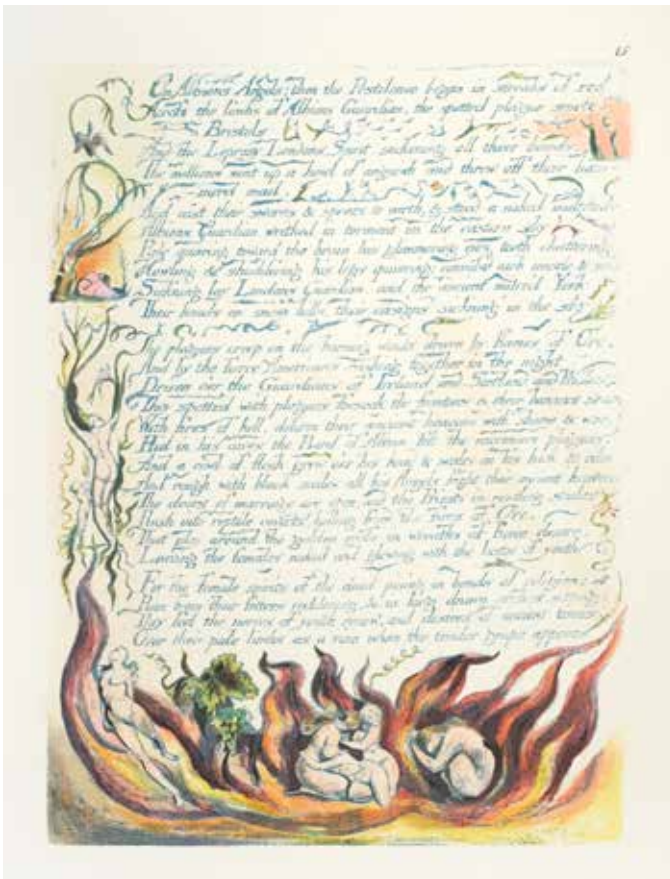 15
On Albions Angels; then the Pestilence began in streaks of red
Across the limbs of Albions Guardian, the spotted plague smote
Bristols
And the Leprous Londons Spirit, sickening all their bands:
The millions sent up a howl of anguish and threw off their ham-
merd mail,
And cast their swords & spears to earth, & stood a naked multitude.
Albions Guardian writhed in torment on the eastern sky
Pale quivring toward the brain his glimmering eyes, teeth chattering
Howling & shuddering his legs quivering; convuls'd each muscle &
Sick'ning lay Londons Guardian, and the ancient miter'd York
Their heads on snowy hills, their ensigns sick'ning in the sky
The plagues creep on the burning winds driven by flames of Orc,
And by the fierce Americans rushing together in the night
Driven o'er the Guardians of Ireland and Scotland and Wales
They spotted with plagues forsook the frontiers & their banners
With fires of hell, deform their ancient heavens with shame & woe.
Hid in his caves the Bard of Albion felt the enormous plagues.
And a cowl of flesh grew o'er his head & scales on his back & ribs;
And rough with black scales all his Angels fright their ancient heavens
The doors of marriage are open, and the Priests in rustling scales
Rush into reptile coverts, hiding from the fires of Orc,
That play around the golden roofs in wreaths of fierce desire,
Leaving the females naked and glowing with the lusts of youth
For the female spirits of the dead pining in bonds of religion;
Run from their fetters reddening, & in long drawn arches sitting:
They feel the nerves of youth renew, and desires of ancient times,
Over their pale limbs as a vine when the tender grape appears